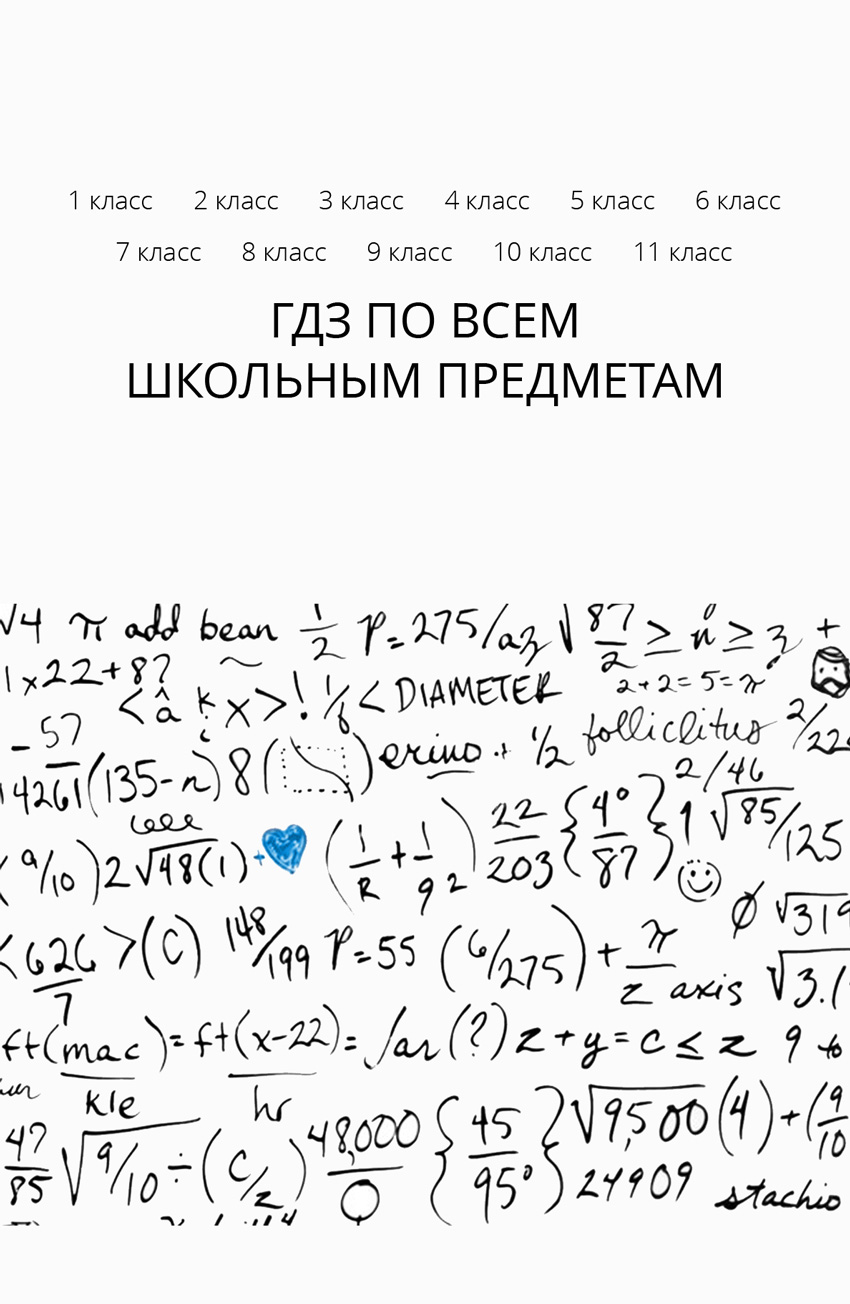 1 класс 2 класс 3 класс 4 класс 5 класс 6 класс
7 класс 8 класс 9 класс 10 класс 11 класс
ГДЗ ПО ВСЕМ
ШКОЛЬНЫМ ПРЕДМЕТАМ
√4 π add bean 1/2 P=275/az √ 87/2 ≥ n ≥ z +
1x22+8? <â x>! 1/6 < DIAMETER 2+2=5=π
-57/14261 (135-n) 8 ( ) erino + 1/2 folliclitus 2/22
eee 2/46
(9/10) 2√48(1) + (1/R + 1/9 2) 22/203 {4°/87} 1 √85/125
<626/7 >(C) 148/199 P=55 (6/275) + π/z axis Ø √319 √3.1
ft(mac/kle) = ft(x-22/hr) = ∫ar(?) z+y=c≤z 9 to
47/85 √9/10 ÷ (c/z) 48,000/O {45/95°} √9,500 (4) + (9/10
24909 stachio